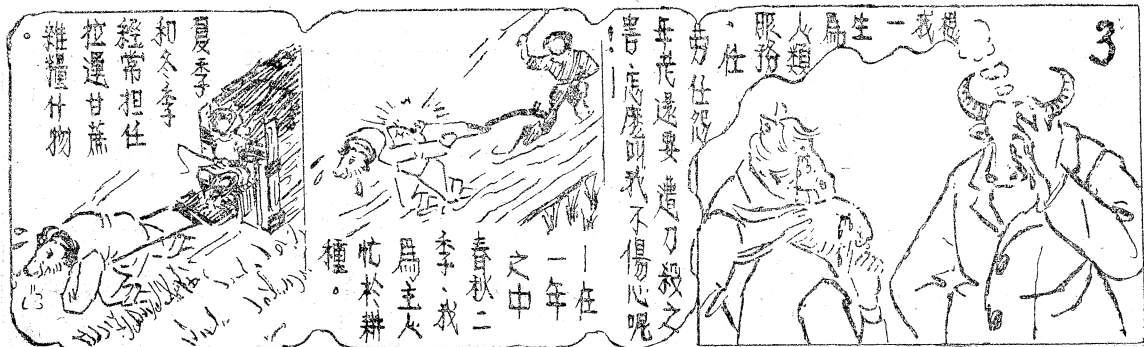 3
想我一生爲
人類
服務
、任
勞任怨
年老還要遭刀殺之
害、怎麼叫我不傷心呢
!——
—在
一年
之中
春秋二
季、我
爲主人
忙於耕
種。
夏季
和冬季
經常担任
拉運甘蔗
雜糧什物
。